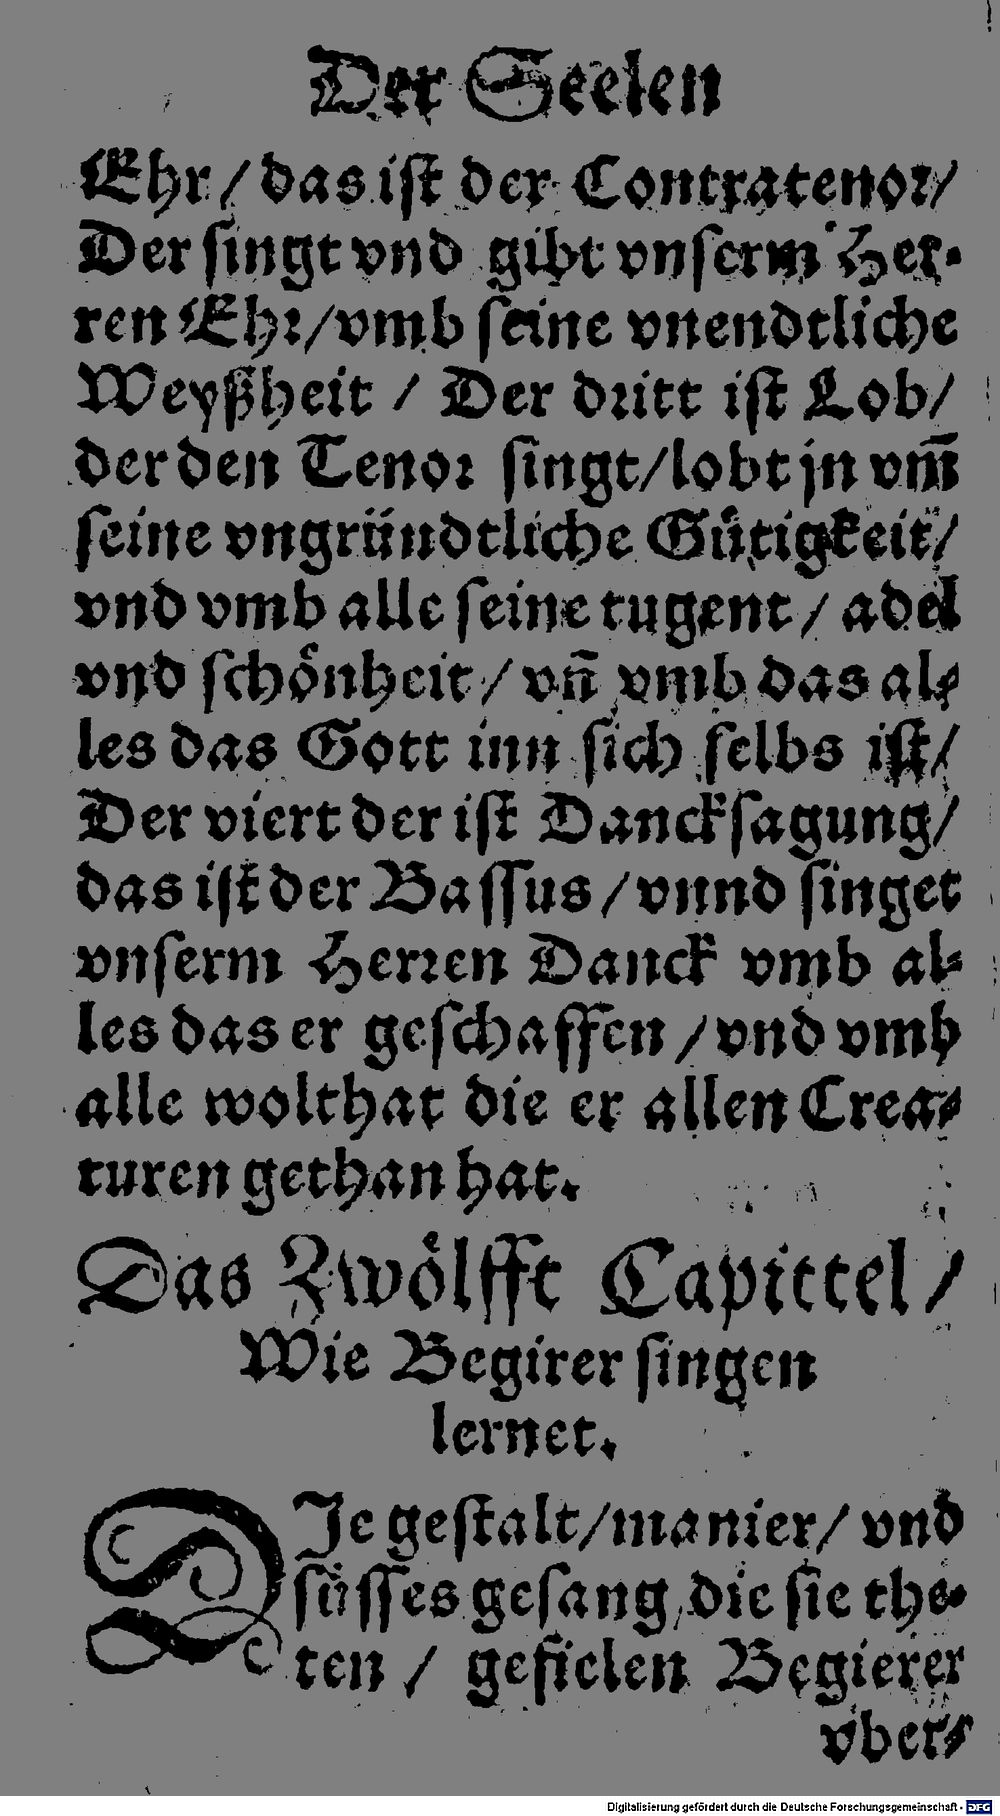 Der Seelen
Ehr / das ist der Contratenor /
Der singt vnd gibt vnserm Her-
ren Ehr / vmb seine vnendtliche
Weyßheit / Der dritt ist Lob /
der den Tenor singt / lobt jn vm̃
seine vngründtliche Gütigkeit /
vnd vmb alle seine tugent / adel
vnd schönheit / vñ vmb das al-
les das Gott inn sich selbs ist /
Der viert der ist Dancksagung /
das ist der Bassus / vnnd singet
vnserm Herren Danck vmb al-
les das er geschaffen / vnd vmb
alle wolthat die er allen Crea-
turen gethan hat.
Das Zwölfft Capittel /
Wie Begirer singen
lernet.
DJe gestalt / manier / vnd
süsses gesang / die sie the-
ten / gefielen Begierer
vber-
Digitalisierung gefördert durch die Deutsche Forschungsgemeinschaft - DFG